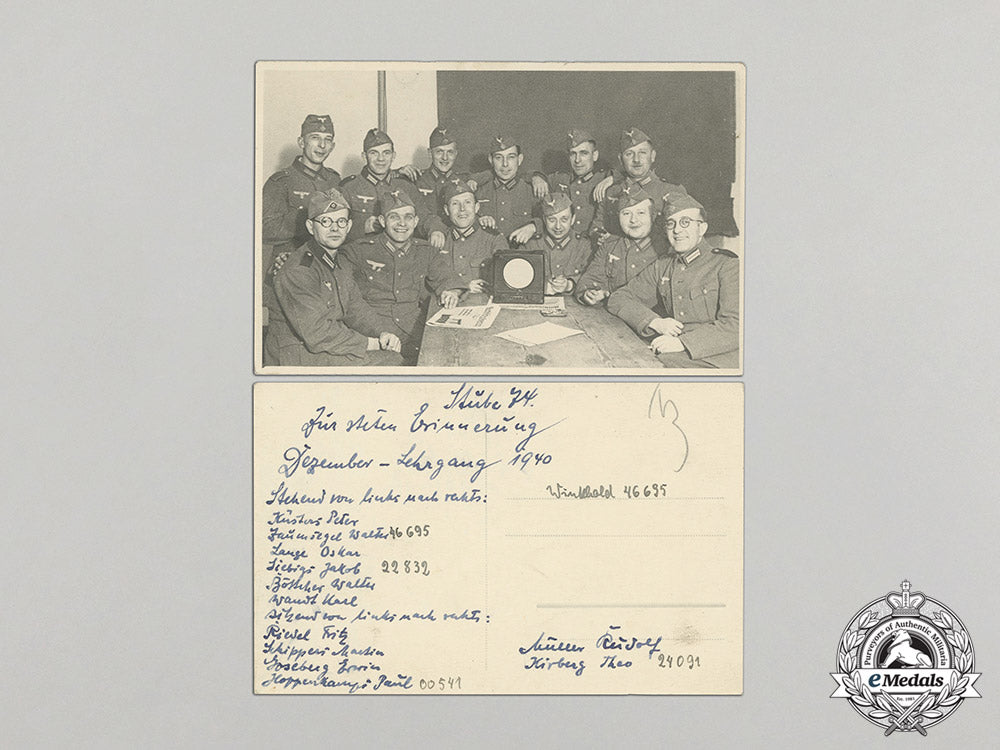 Stube 74.
Zur steten Erinnerung
Dezember - Lehrgang 1940
Stehend von links nach rechts:
Küsters Peter
Zaumsegel Walter 46695
Lange Oskar
Liebigs Jakob 22832
Böttcher Walter
Wandt Karl
Sitzend von links nach rechts:
Riedel Fritz
Schippers Martin
Goseberg Erwin
Hoppenkamps Paul 00541
Winkhold 46695
Müller Rudolf
Kirberg Theo 24091
Purveyors of Authentic Militaria
eMedals
Est. 1981